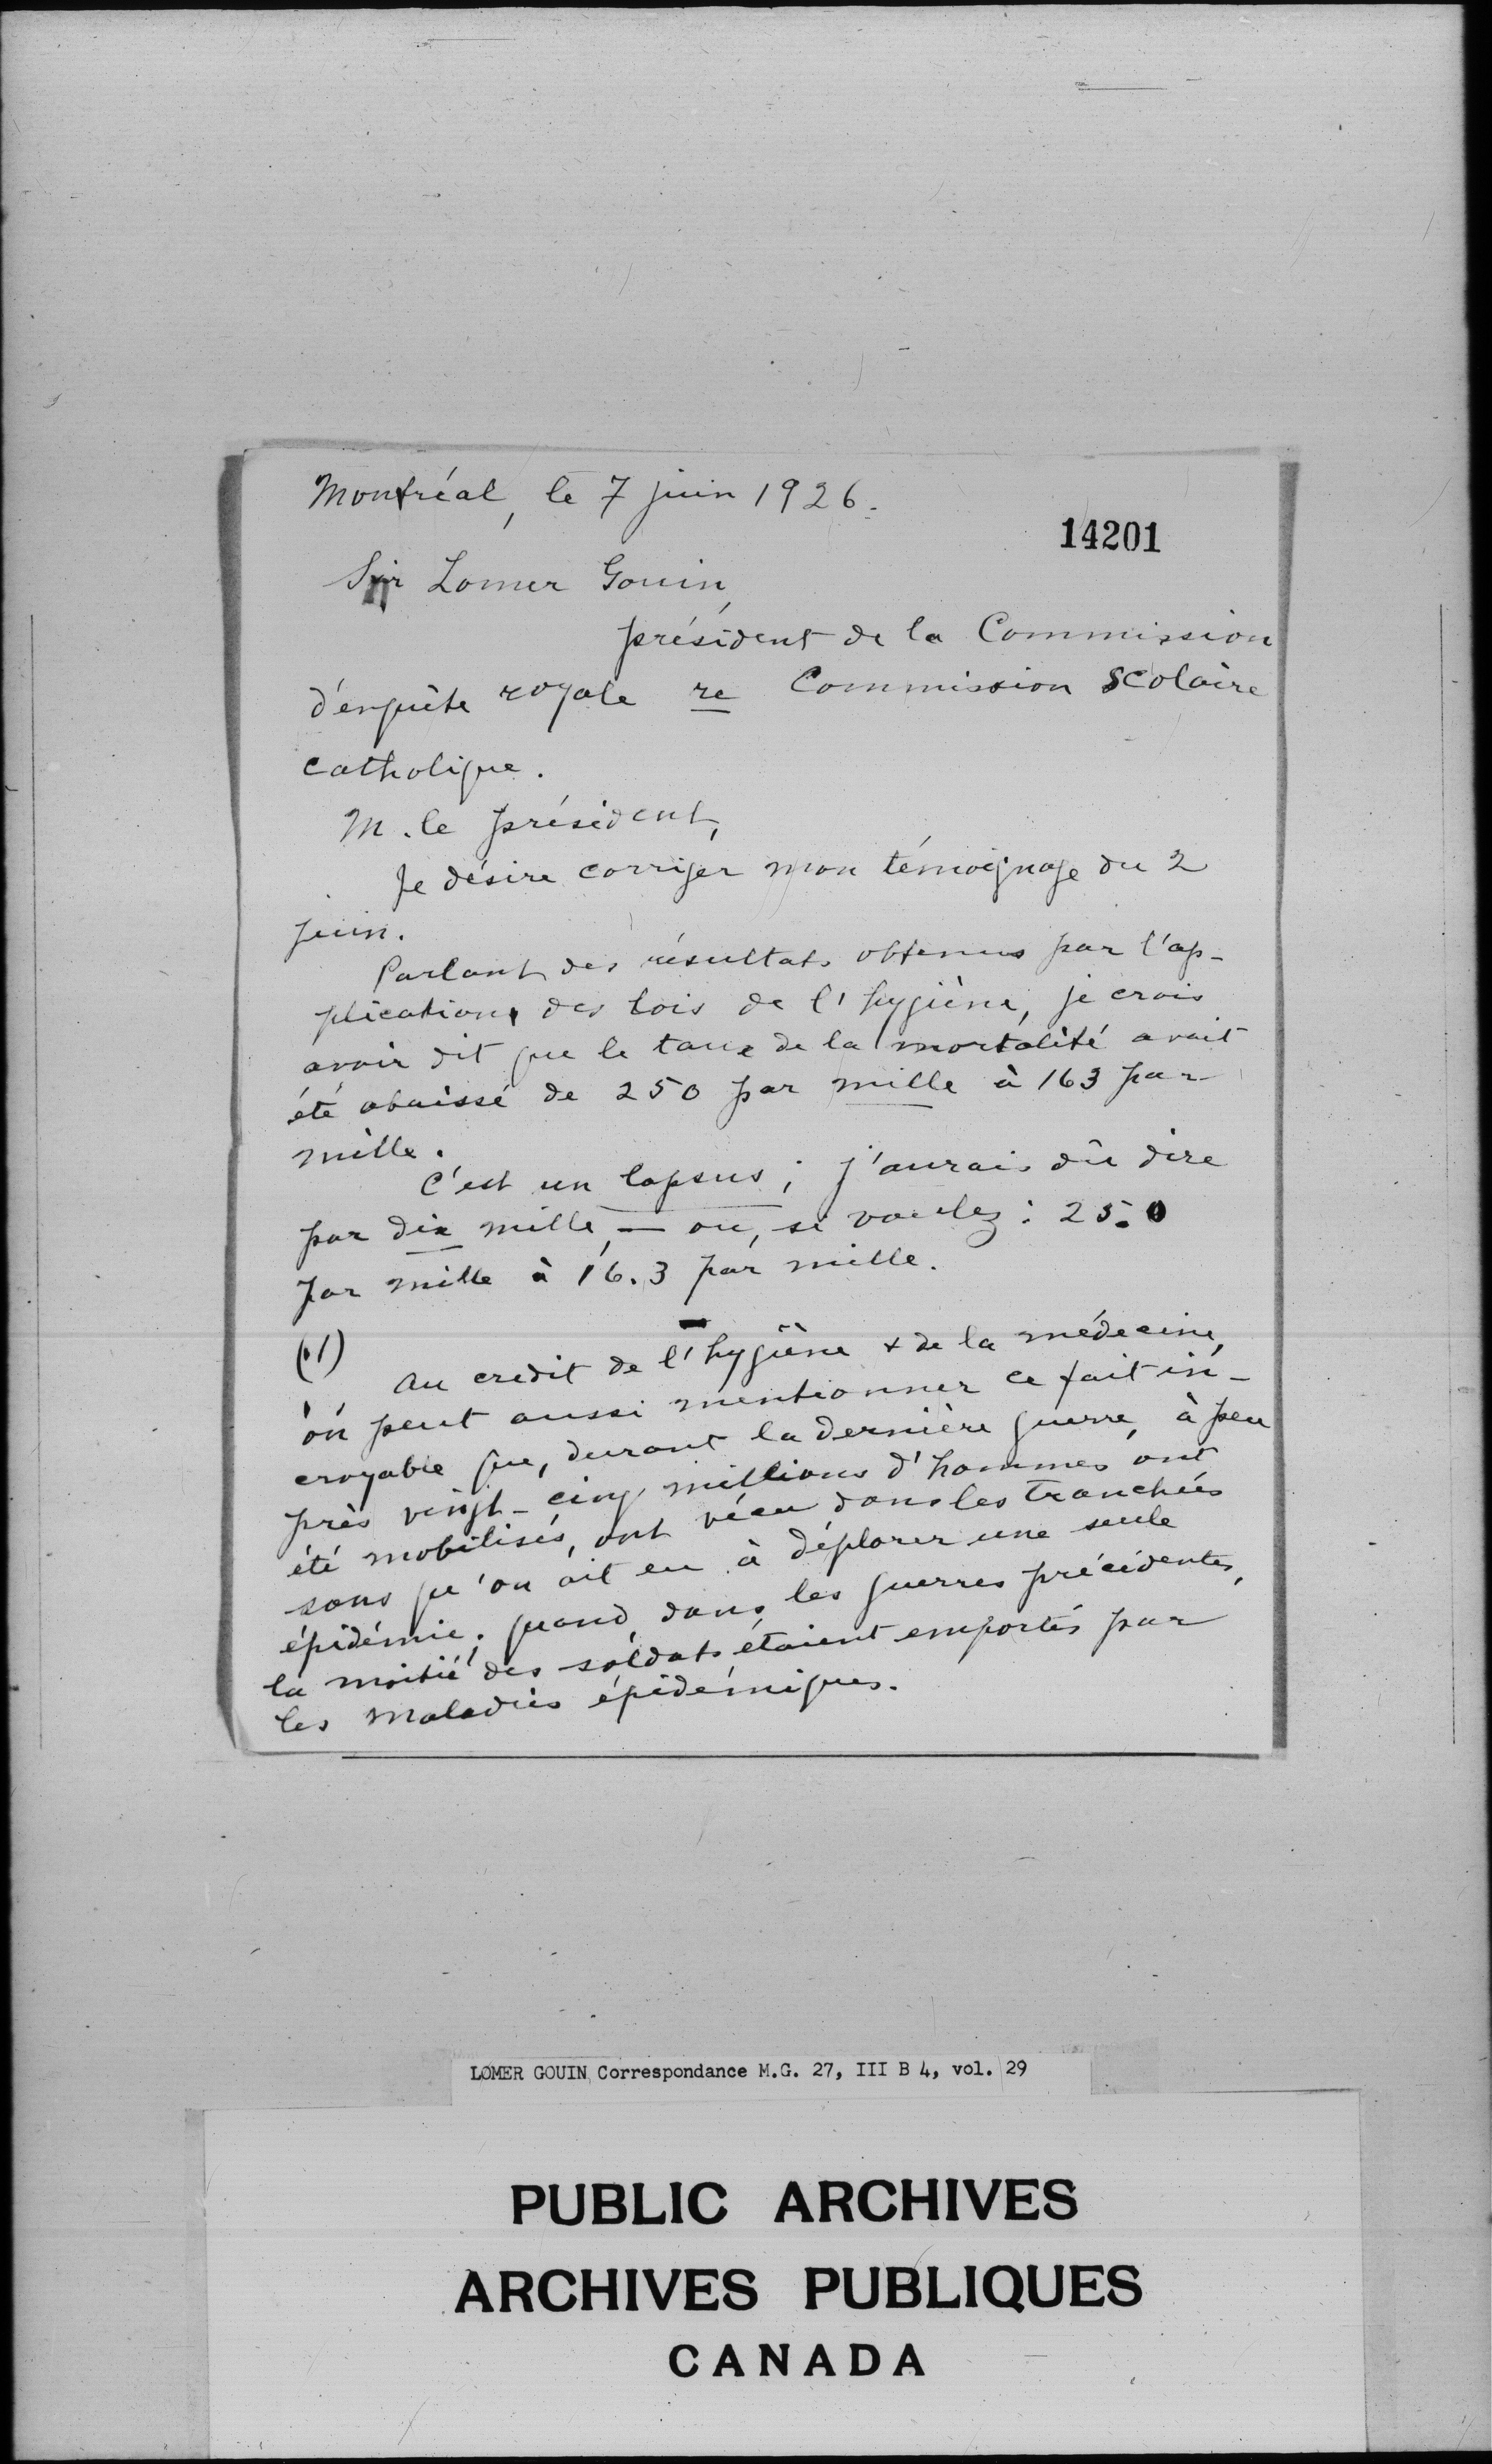 Montréal, le 7 juin 1926.
14201
Sir Lomer Gouin,
président de la Commission
d'enquête royale re Commission Scolaire
catholique.
M. le président,
Je désire corriger mon témoignage du 2
juin.
Parlant des résultats obtenus par l'ap-
plication des lois de l'hygiène, je crois
avoir dit que le taux de la mortalité avait
été abaissé de 250 par mille à 163 par
mille.
C'est un lapsus; j'aurais dû dire
par dix mille, — ou, si voulez: 25.0
par mille à 16.3 par mille.
(1)
Au crédit de l'hygiène & de la médecine,
on peut aussi mentionner ce fait in-
croyable que, durant la dernière guerre, à peu
près vingt-cinq millions d'hommes ont
été mobilisés, ont vécu dans les tranchées
sans qu'on ait eu à déplorer une seule
épidémie; quand, dans les guerres précédentes,
la moitié des soldats étaient emportés par
les maladies épidémiques.
LOMER GOUIN Correspondance M.G. 27, III B 4, vol. 29
PUBLIC ARCHIVES
ARCHIVES PUBLIQUES
CANADA